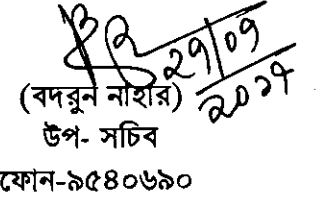 ২৭/০৭
২০১৭
(বদরুন নাহার)
উপ- সচিব
ফোন-৯৫৪০৬৯০